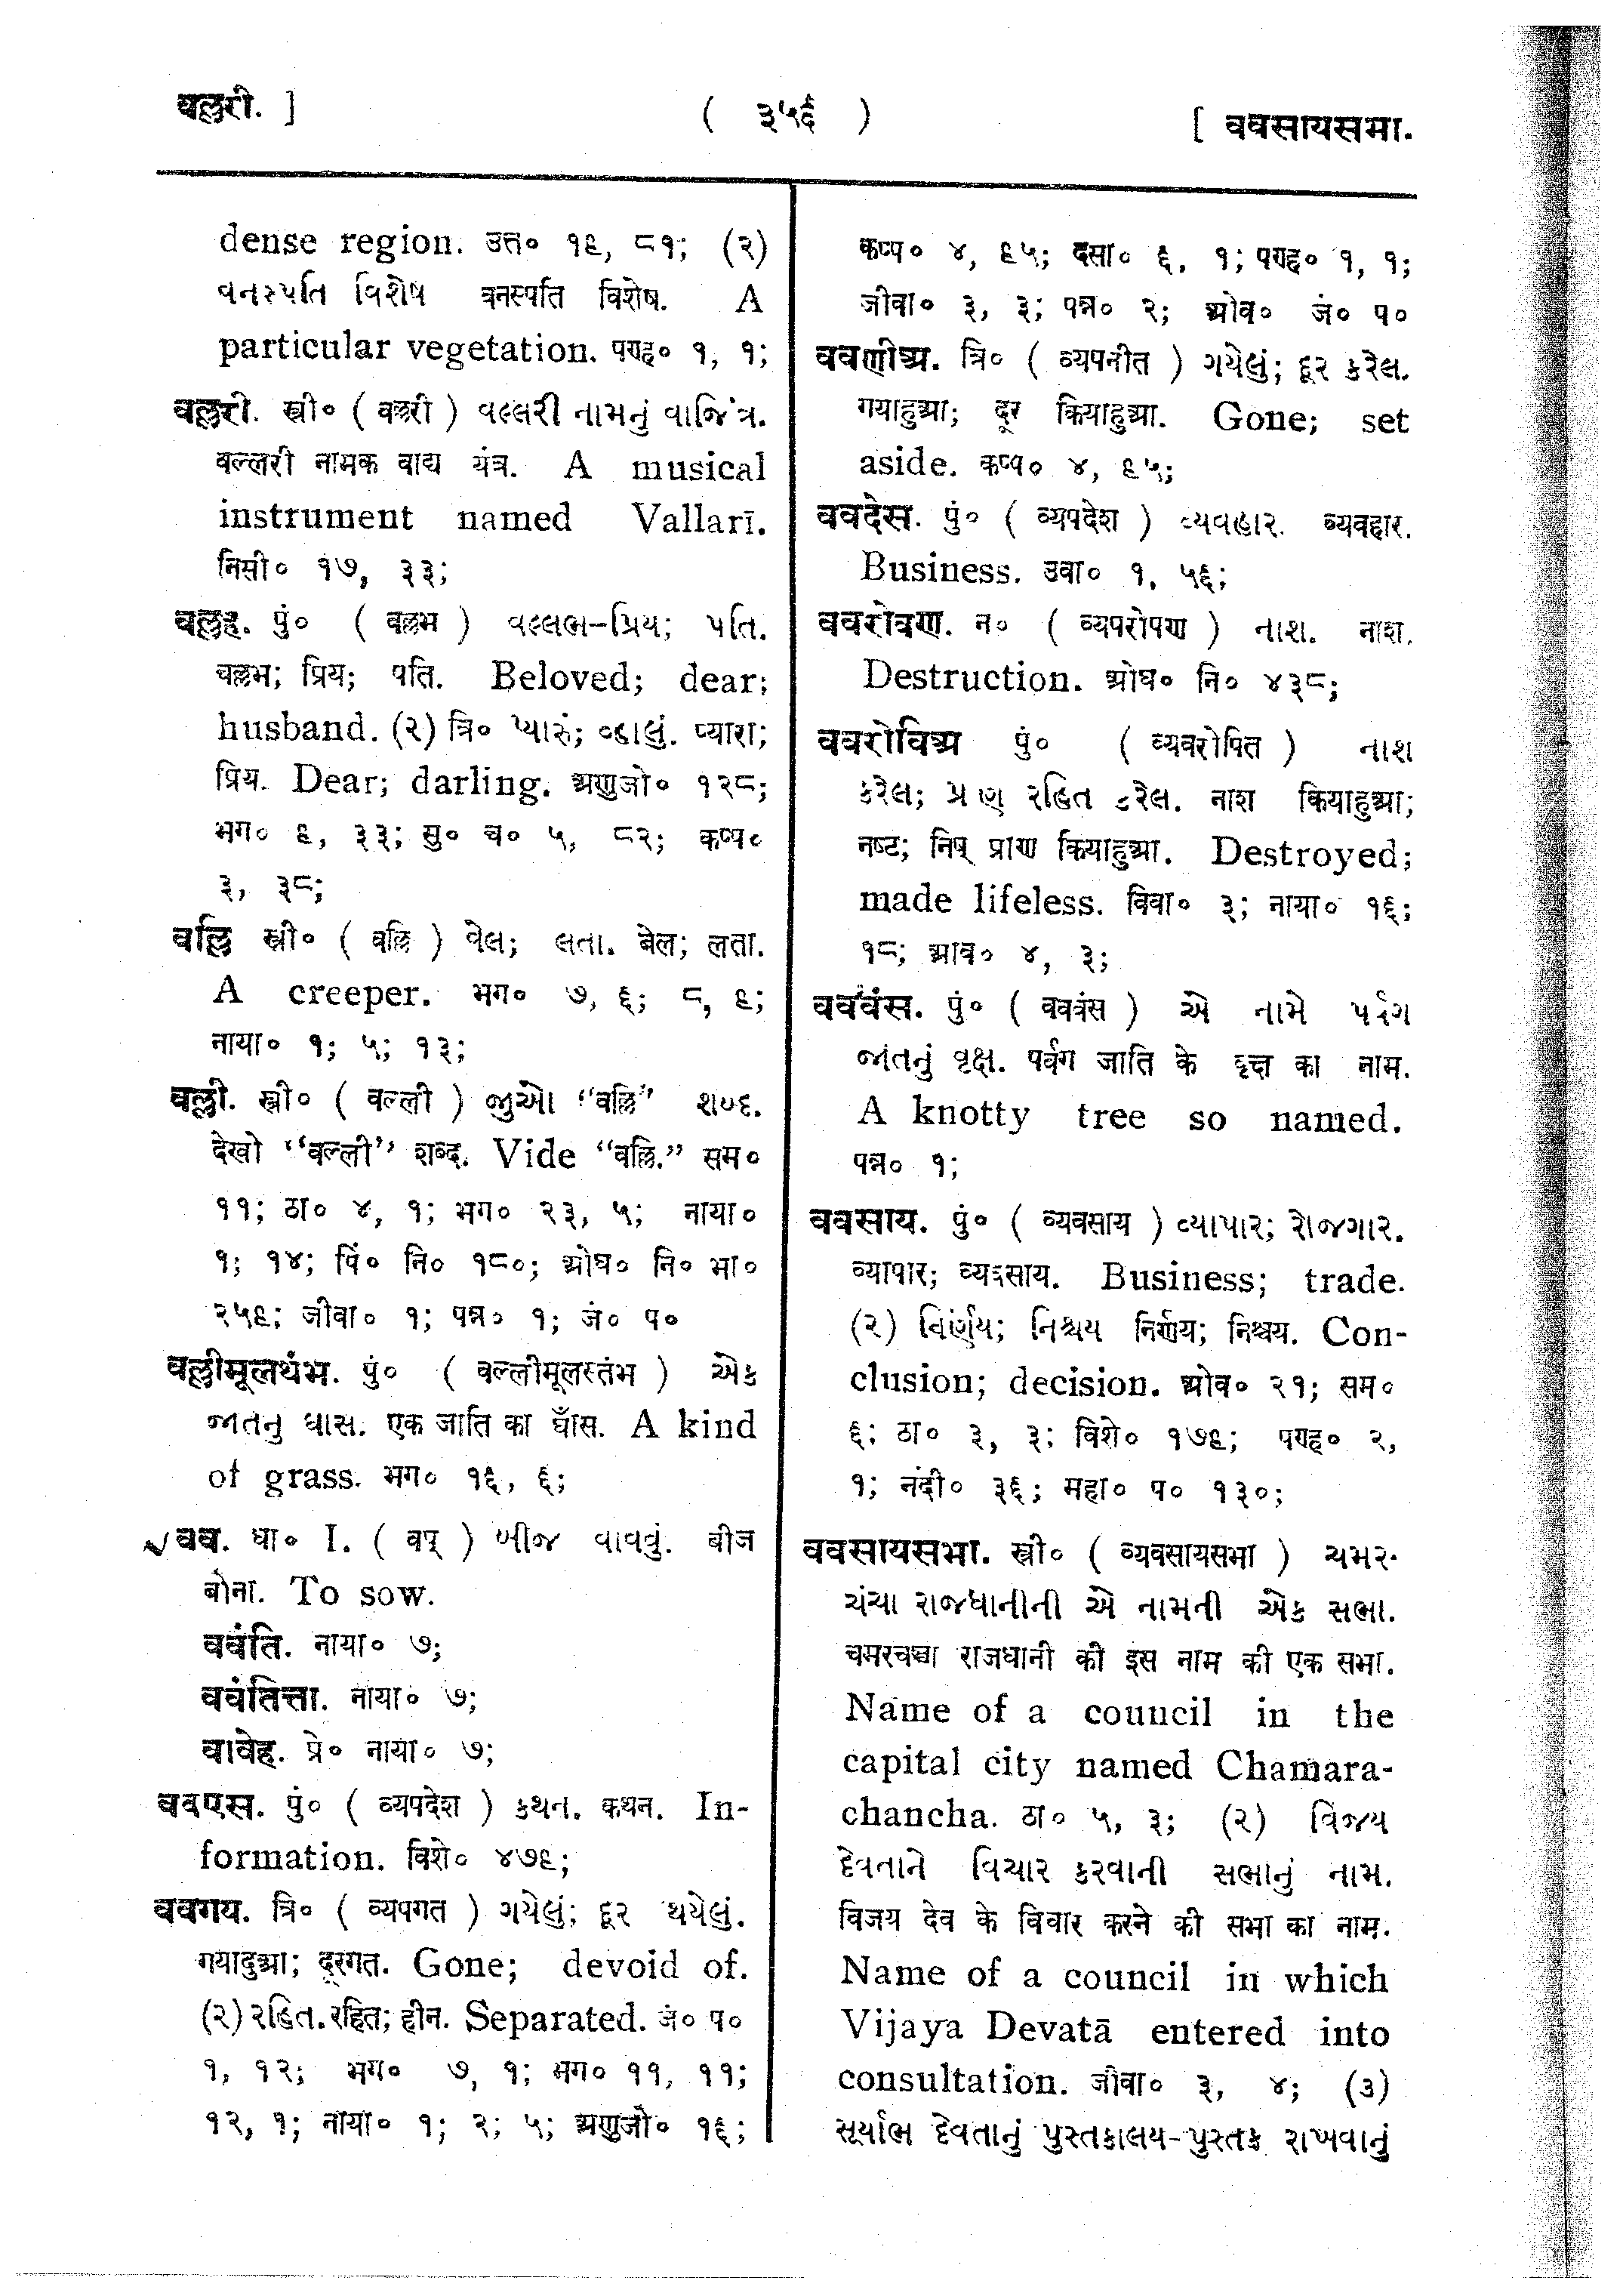 वल्लरी. ]
( ३५६ )
[ ववसायसभा.
dense region. उत्त० १९, ८१; (२)
વનસ્પતિ વિશેષ वनस्पति विशेष. A
particular vegetation. पण्ह० १, १;
वल्लरी. स्त्री० ( वल्लरी ) વલ્લરી નામનું વાજિંત્ર.
वल्लरी नामक वाद्य यंत्र. A musical
instrument named Vallarī.
निसी० १७, ३३;
वल्लह. पुं० ( वल्लभ ) વલ્લભ-પ્રિય; પતિ.
वल्लभ; प्रिय; पति. Beloved; dear;
husband. (२) त्रि० પ્યારું; વ્હાલું. प्यारा;
प्रिय. Dear; darling. अणुजो० १२८;
भग० ९, ३३; सु० च० ५, ८२; कप्प०
३, ३८;
वल्लि स्त्री० ( वल्लि ) વેલ; લતા. बेल; लता.
A creeper. भग० ७, ६; ८, ९;
नाया० १; ५; १३;
वल्ली. स्त्री० ( वल्ली ) જુઓ "वल्लि" શબ્દ.
देखो "वल्ली" शब्द. Vide "वल्लि." सम०
११; ठा० ४, १; भग० २३, ५; नाया०
१; १४; पिं० नि० १८०; ओघ० नि० भा०
२५९; जीवा० १; पन्न० १; जं० प०
वल्लीमूलथंभ. पुं० ( वल्लीमूलस्तंभ ) એક
જાતનુ ઘાસ. एक जाति का घाँस. A kind
of grass. भग० १६, ६;
√वव. धा० I. ( वप् ) બીજ વાવવું. बीज
बोना. To sow.
ववंति. नाया० ७;
ववंतित्ता. नाया० ७;
वावेह. प्रे० नाया० ७;
ववएस. पुं० ( व्यपदेश ) કથન. कथन. In-
formation. विशे० ४७९;
ववगय. त्रि० ( व्यपगत ) ગયેલું; દૂર થયેલું.
गयादुआ; दूरगत. Gone; devoid of.
(२) રહિત. रहित; हीन. Separated. जं० प०
१, १२; भग० ७, १; भग० ११, ११;
१२, १; नाया० १; २; ५; अणुजो० १६;
कप्प० ४, ९५; दसा० ६, १; पण्ह० १, १;
जीवा० ३, ३; पन्न० २; ओव० जं० प०
ववणीअ. त्रि० ( व्यपनीत ) ગયેલું; દૂર કરેલ.
गयाहुआ; दूर कियाहुआ. Gone; set
aside. कप्प० ४, ९५;
ववदेस. पुं० ( व्यपदेश ) વ્યવહાર. व्यवहार.
Business. उवा० १, ५६;
ववरोवण. न० ( व्यपरोपण ) નાશ. नाश.
Destruction. ओघ० नि० ४३८;
ववरोविअ पुं० ( व्यवरोपित ) નાશ
કરેલ; પ્રાણ રહિત કરેલ. नाश कियाहुआ;
नष्ट; निष् प्राण कियाहुआ. Destroyed;
made lifeless. विवा० ३; नाया० १६;
१८; आव० ४, ३;
ववंवंस. पुं० ( ववत्रंस ) એ નામે પર્વગ
જાતનું વૃક્ષ. पर्वग जाति के वृक्ष का नाम.
A knotty tree so named.
पन्न० १;
ववसाय. पुं० ( व्यवसाय ) વ્યાપાર; રોજગાર.
व्यापार; व्यवसाय. Business; trade.
(२) નિર્ણય; નિશ્ચય निर्णय; निश्चय. Con-
clusion; decision. ओव० २१; सम०
६; ठा० ३, ३; विशे० १७९; पण्ह० २,
१; नंदी० ३६; महा० प० १३०;
ववसायसभा. स्त्री० ( व्यवसायसभा ) ચમર-
ચંચા રાજધાનીની એ નામની એક સભા.
चमरचञ्चा राजधानी की इस नाम की एक सभा.
Name of a council in the
capital city named Chamara-
chancha. ठा० ५, ३; (२) વિજય
દેવતાને વિચાર કરવાની સભાનું નામ.
विजय देव के विचार करने की सभा का नाम.
Name of a council in which
Vijaya Devatā entered into
consultation. जीवा० ३, ४; (३)
સૂર્યાભ દેવતાનું પુસ્તકાલય-પુસ્તક રાખવાનું